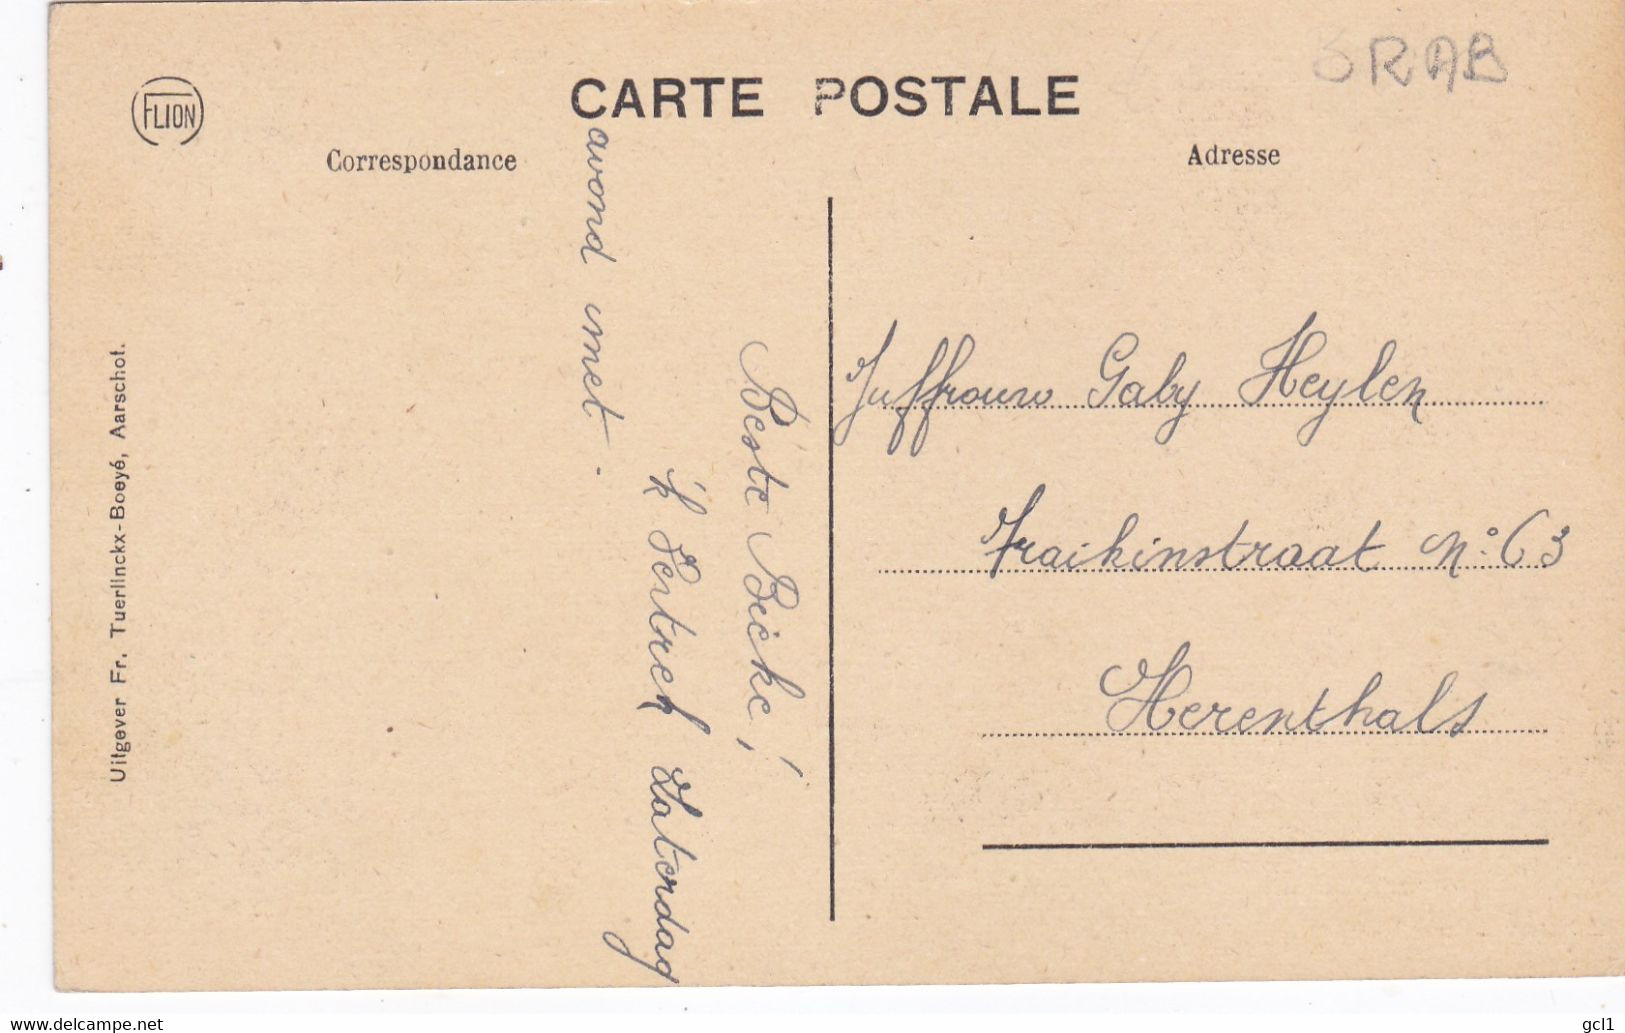 FLION
CARTE POSTALE
BRAB
Correspondance
Adresse
Beste Bicke,!
'k Vertrek Zaterdag
avond met.
Juffrouw Gaby Heylen
Fraikinstraat No: 63
Herenthals
Uitgever Fr. Tuerlinckx-Boeyé, Aarschot.
www.delcampe.net
gcl1